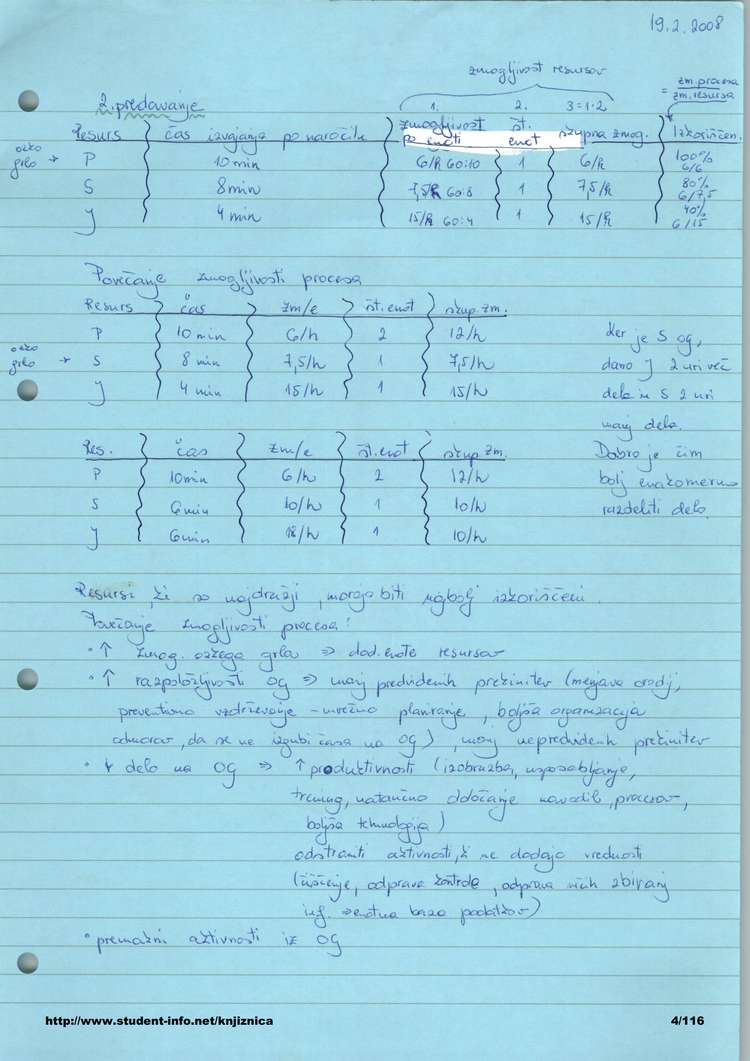 19.2.2008
zmogljivost resursov
= zm. procesa
zm. resursa
2. predavanje
1. 2. 3=1·2
Resurs čas izvajanja po naročilu zmogljivost po enoti št. enot skupna zmog. Izkoriščen.
ozko grlo → P 10 min 6/h 60:10 1 6/h 100% 6/6
S 8 min 7,5/h 60:8 1 7,5/h 80% 6/7,5
J 4 min 15/h 60:4 1 15/h 40% 6/15
Povečanje zmogljivosti procesa
Resurs čas zm/e št. enot skup. zm.
P 10 min 6/h 2 12/h
ozko grlo → S 8 min 7,5/h 1 7,5/h
J 4 min 15/h 1 15/h
Ker je S og,
damo J 2 uri več
dela in S 2 uri
manj dela.
Dobro je čim
bolj enakomerno
razdeliti delo.
Res. čas zm/e št. enot skup. zm.
P 10 min 6/h 2 12/h
S 6 min 10/h 1 10/h
J 6 min /h 1 10/h
Resursi, ki so najdražji, morajo biti najbolj izkoriščeni.
Povečanje zmogljivosti procesa:
• ↑ zmog. ozkega grla ⇒ dod. enote resursov
• ↑ razpoložljivosti OG ⇒ manj predvidenih prekinitev (menjava orodij,
preventivno vzdrževanje - mrežno planiranje, boljša organizacija
odmorov, da se ne izgubi časa na OG), manj nepredvidenih prekinitev
• ↓ delo na OG ⇒ ↑ produktivnosti (izobrazba, usposabljanje,
trening, natančno določanje navodil, procesov,
boljša tehnologija)
odstraniti aktivnosti, ki ne dodajo vrednosti
(čiščenje, odprava kontrole, odprava zbiranj
inf. ⇒ enotna baza podatkov)
• premakni aktivnosti iz OG
http://www.student-info.net/knjiznica
4/116